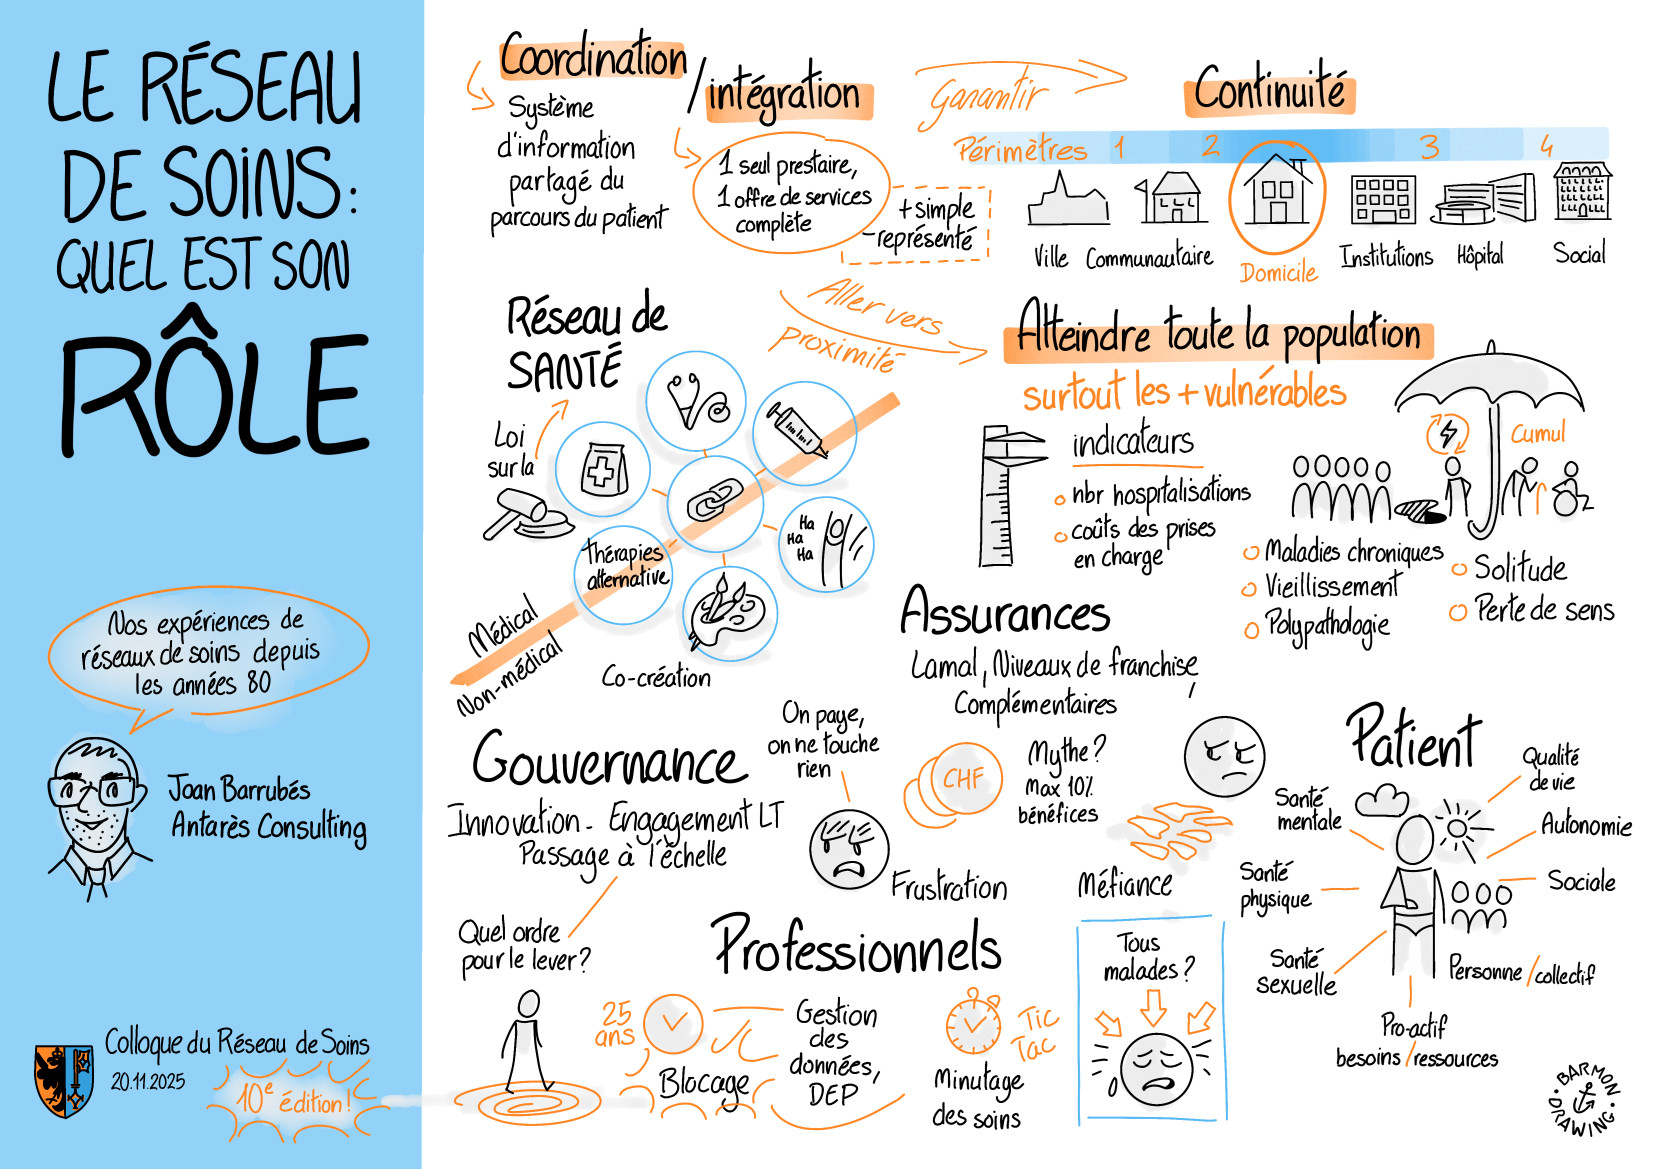 LE RÉSEAU
DE SOINS:
QUEL EST SON
RÔLE
Nos expériences de
réseaux de soins depuis
les années 80
Joan Barrubés
Antarès Consulting
Colloque du Réseau de Soins
20.11.2025
10e édition!
Coordination
/intégration
Système
d'information
partagé du
parcours du patient
1 seul prestaire,
1 offre de services
complète
+ simple
- représenté
Garantir
Continuité
Périmètres 1 2 3 4
Ville
Communautaire
Domicile
Institutions
Hôpital
Social
Réseau de
SANTÉ
Loi
sur la
Thérapies
alternative
Ha
Ha
Ha
Médical
Non-médical
Co-création
Aller vers
proximité
Atteindre toute la population
surtout les + vulnérables
indicateurs
nbr hospitalisations
coûts des prises
en charge
Cumul
Maladies chroniques
Vieillissement
Polypathologie
Solitude
Perte de sens
Assurances
Lamal, Niveaux de franchise,
Complémentaires
On paye,
on ne touche
rien
CHF
Mythe?
Max 10%
bénéfices
Frustration
Méfiance
Gouvernance
Innovation - Engagement LT
Passage à l'échelle
Quel ordre
pour le lever?
Professionnels
25
ans
Blocage
Gestion
des
données,
DEP
Tic
Tac
Minutage
des soins
Tous
malades?
Patient
Qualité
de vie
Santé
mentale
Autonomie
Santé
physique
Sociale
Santé
sexuelle
Personne/collectif
Pro-actif
besoins/ressources
BARMON
DRAWING